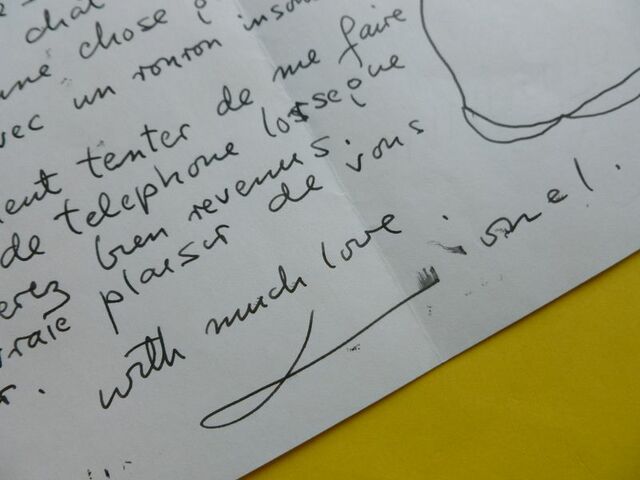 chat
une chose
avec un ronron
tenter de me faire
de telephone losseque
bien revenus.
plaisir de vous
with much love. ionel.